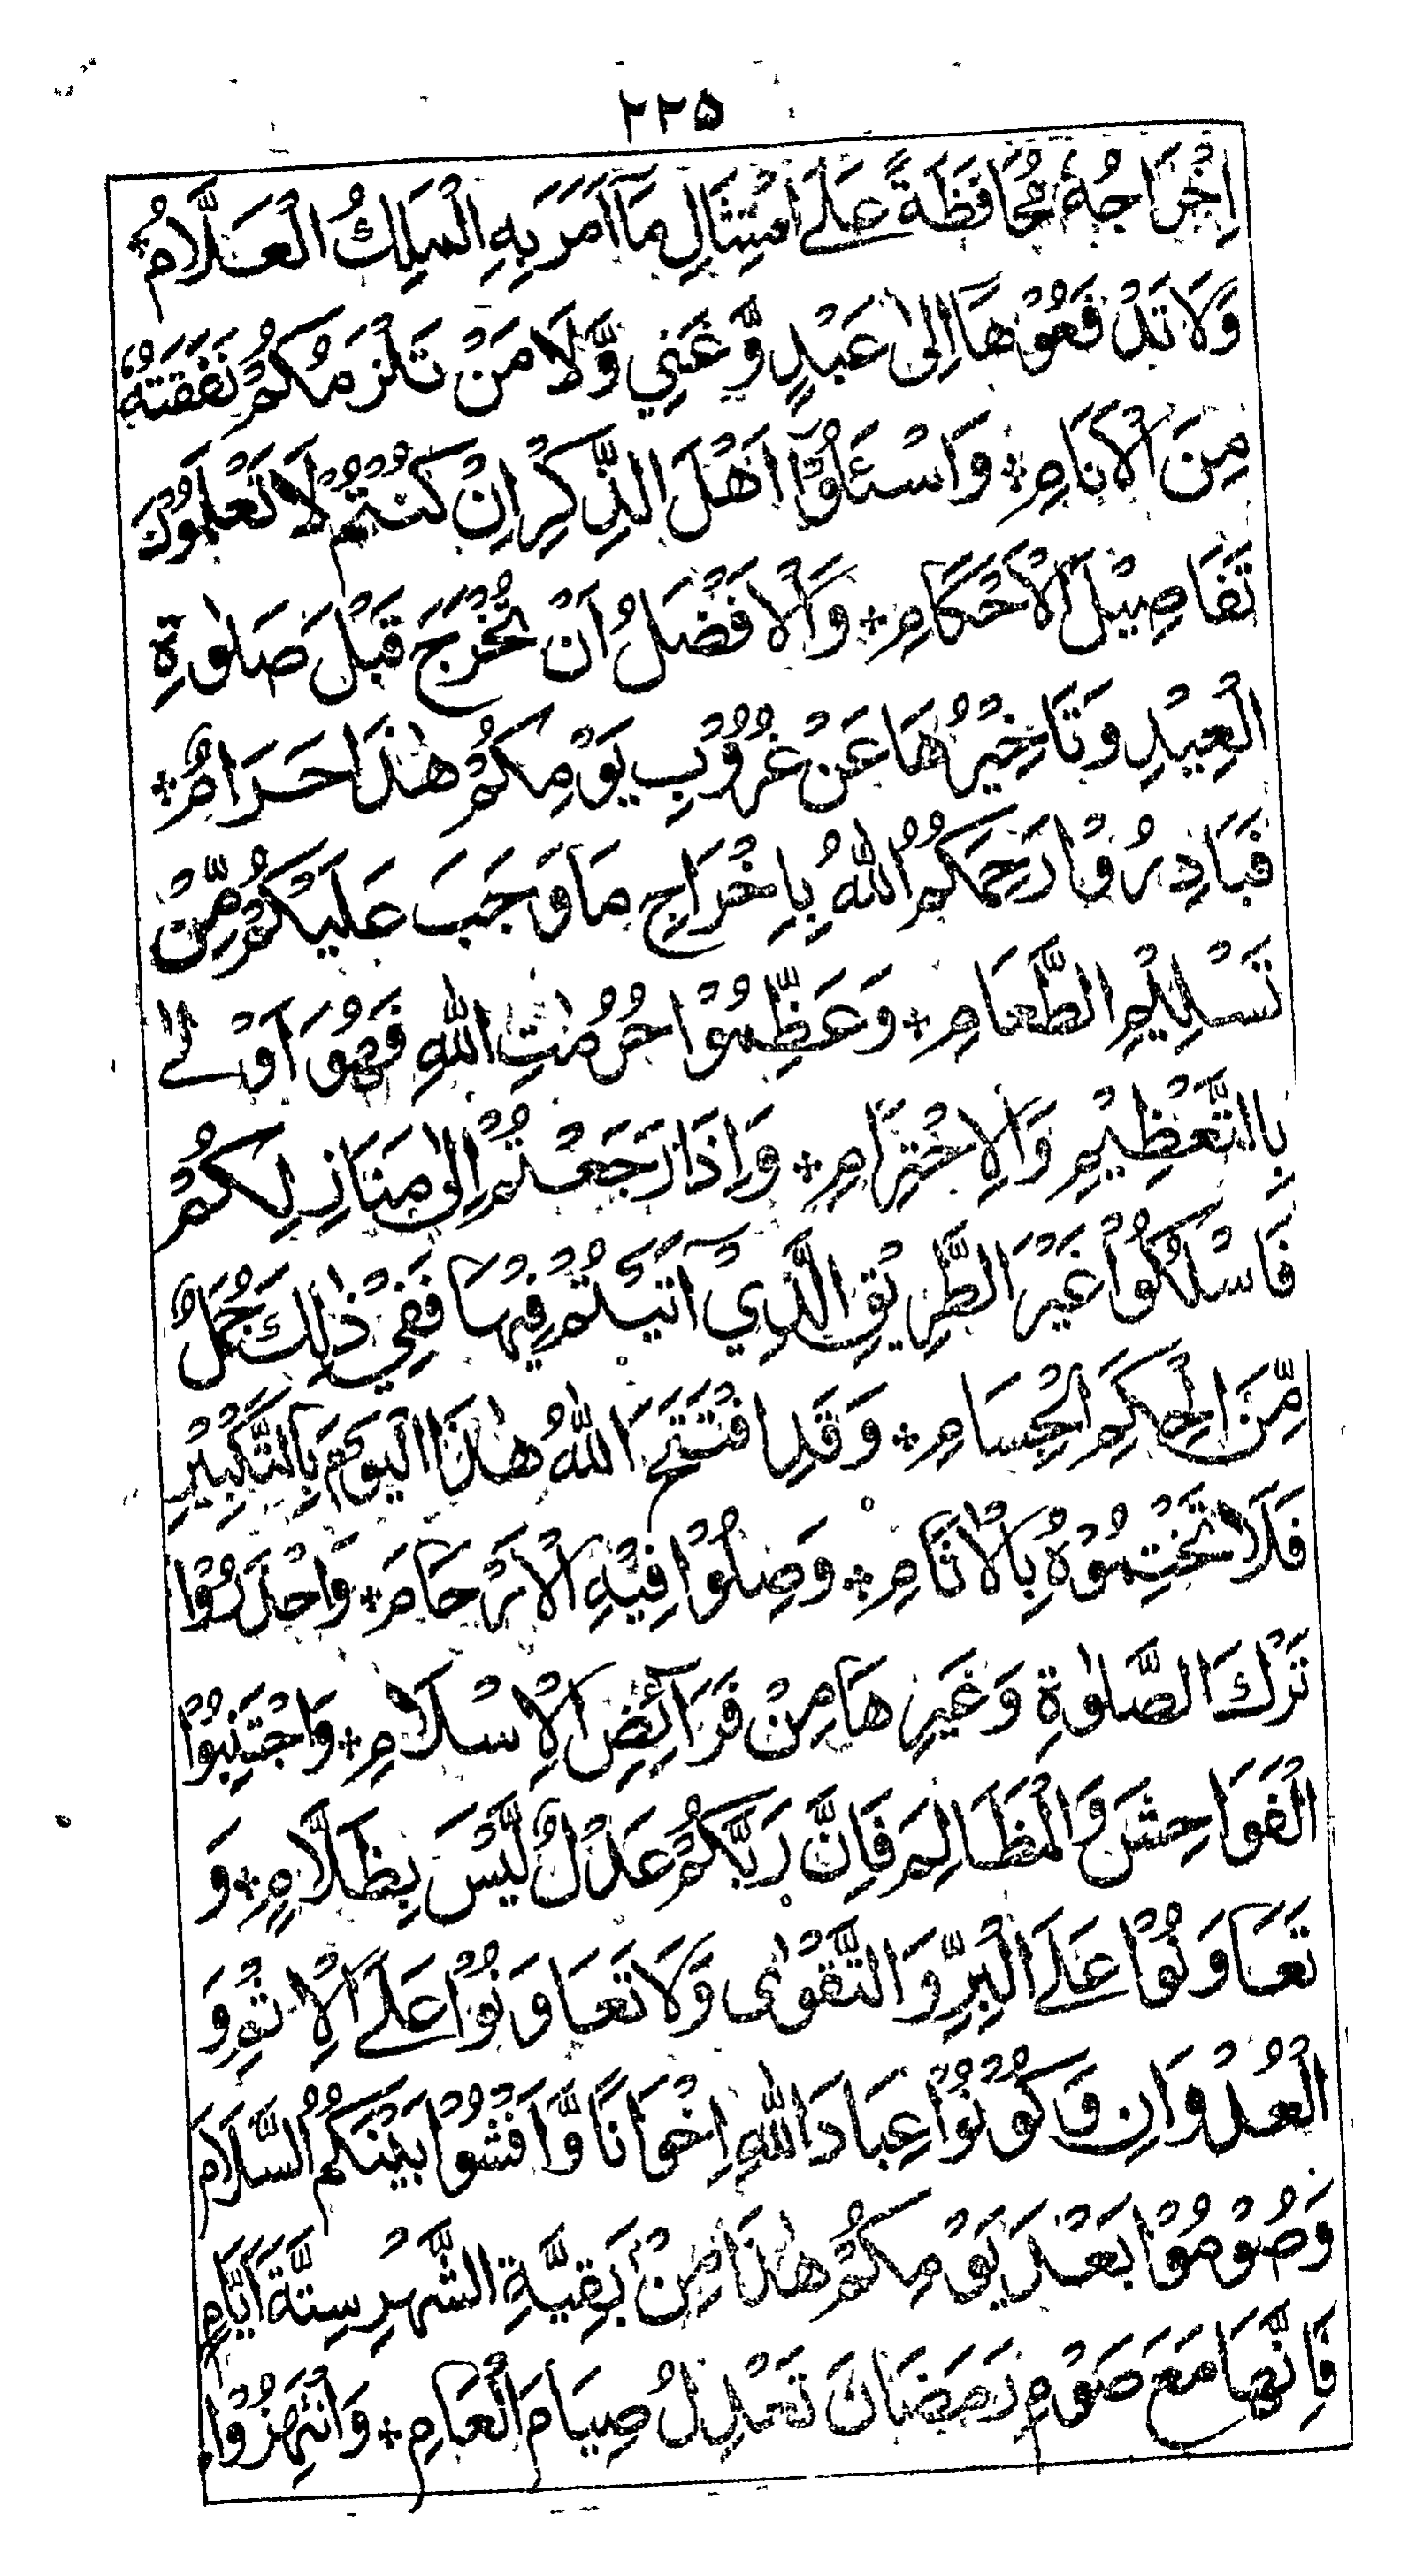 ۲۲۵
اِخْرَاجُهٗ مُحَافَظَةً عَلَى امْتِثَالِ مَآ اَمَرَ بِهِ الْمَلِكُ الْعَلَّامُ *
وَلَا تَدْفَعُوْهَا اِلٰى عَبْدٍ وَّغَنِيٍ وَّلَا مَنْ تَلْزَمُكُمْ نَفَقَتُهٗ
مِنَ الْاَنَامِ * وَاسْئَلُوْٓا اَهْلَ الذِّكْرِ اِنْ كُنْتُمْ لَا تَعْلَمُوْنَ
تَفَاصِيْلَ الْاَحْكَامِ * وَالْاَفْضَلُ اَنْ تُخْرَجَ قَبْلَ صَلٰوةِ
الْعِيْدِ وَتَاخِيْرُهَا عَنْ غُرُوْبِ يَوْمِكُمْ هٰذَا حَرَامٌ *
فَبَادِرُوْا رَحِمَكُمُ اللّٰهُ بِاِخْرَاجِ مَا وَجَبَ عَلَيْكُمْ مِّنْ
تَسْلِيْمِ الطَّعَامِ * وَعَظِّمُوْا حُرُمٰتِ اللّٰهِ فَهُوَ اَوْلٰى
بِالتَّعْظِيْمِ وَالْاِحْتِرَامِ * وَاِذَا رَجَعْتُمْ اِلٰى مَنَازِلِكُمْ
فَاسْلُكُوْا غَيْرَ الطَّرِيْقِ الَّذِيْ اَتَيْتُمْ فِيْهَا فَفِيْ ذٰلِكَ جُمَلٌ
مِّنَ الْحِكَمِ الْجِسَامِ * وَقَدِ افْتَتَحَ اللّٰهُ هٰذَا الْيَوْمَ بِالتَّكْبِيْرِ
فَلَا تَخْتِمُوْهُ بِالْاٰثَامِ * وَصِلُوْا فِيْهِ الْاَرْحَامَ * وَاحْذَرُوْا
تَرْكَ الصَّلٰوةِ وَغَيْرِهَا مِنْ فَرَآئِضِ الْاِسْلَامِ * وَاجْتَنِبُوا
الْفَوَاحِشَ وَالْمَظَالِمَ فَاِنَّ رَبَّكُمْ عَدْلٌ لَّيْسَ بِظَلَّامٍ * وَ
تَعَاوَنُوْا عَلَى الْبِرِّ وَالتَّقْوٰى وَلَا تَعَاوَنُوْا عَلَى الْاِثْمِ وَ
الْعُدْوَانِ وَكُوْنُوْا عِبَادَ اللّٰهِ اِخْوَانًا وَّاَفْشُوْا بَيْنَكُمُ السَّلَامَ
وَصُوْمُوْا بَعْدَ يَوْمِكُمْ هٰذَا مِنْ بَقِيَّةِ الشَّهْرِ سِتَّةَ اَيَّامٍ
فَاِنَّهَا مَعَ صَوْمِ رَمَضَانَ تَعْدِلُ صِيَامَ الْعَامِ * وَانْتَهِزُوْا